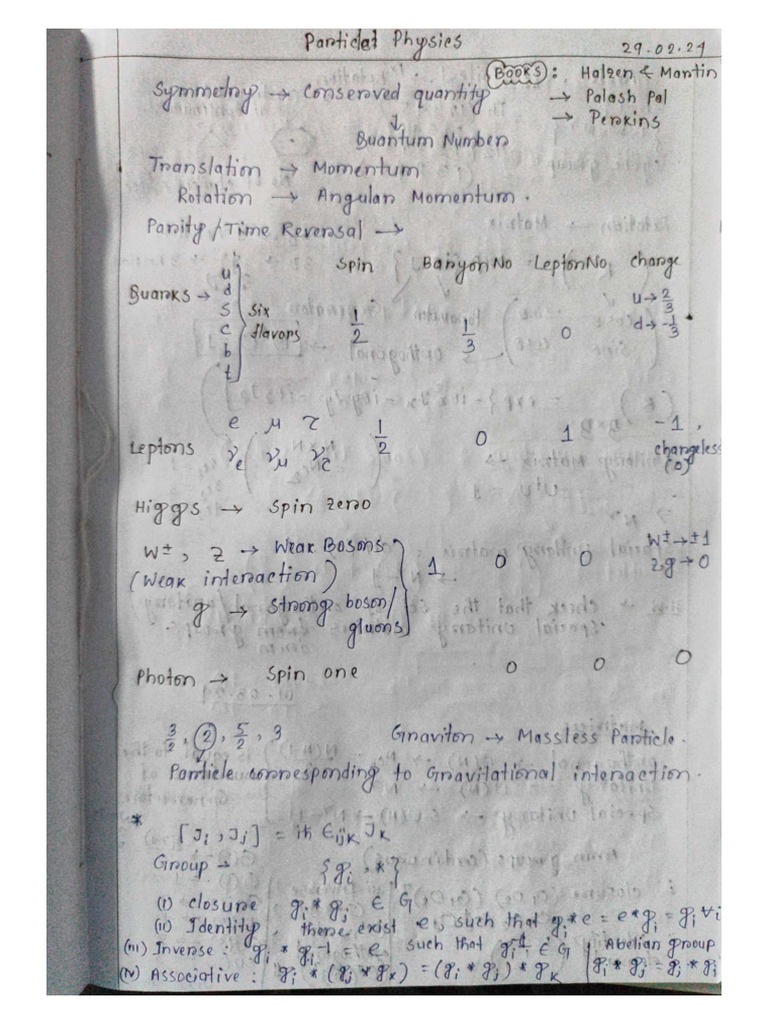 Particle Physics
29.02.24
BOOKS : Halzen & Martin
→ Palash Pal
→ Perkins
Symmetry → Conserved quantity
↓
Quantum Number
Translation → Momentum
Rotation → Angular Momentum.
Parity/Time Reversal →
Spin Baryon No Lepton No, charge
Quarks → u d s c b t } six flavors 1/2 1/3 0 u → 2/3 d → -1/3
Leptons e μ τ νe νμ ντ 1/2 0 1 -1, chargeless (0)
Higgs → Spin zero
W±, Z → Weak Bosons
(Weak interaction)
g → strong boson/gluons } 1 0 0 W± → ±1 Z, g → 0
Photon → Spin one 0 0 0
3/2, 2, 5/2, 3 Graviton → Massless Particle.
Particle corresponding to Gravitational interaction.
* [Ji, Jj] = iħ ϵijk Jk
Group → {gi, *}
(i) closure gi * gj ∈ G
(ii) Identity, there exist e, such that gi * e = e * gi = gi ∀i
(iii) Inverse : gi * gi⁻¹ = e, such that gi⁻¹ ∈ G | Abelian group
(iv) Associative : gi * (gj * gk) = (gi * gj) * gk | gi * gj = gj * gi